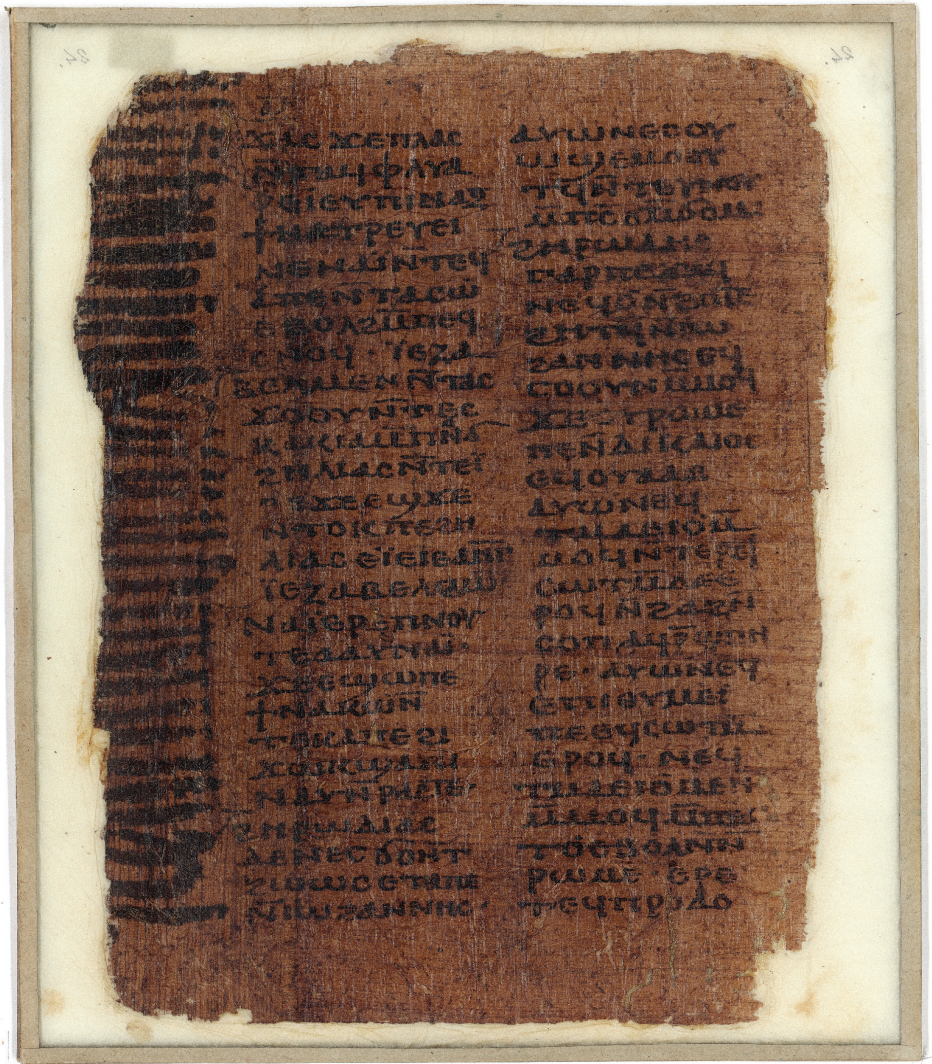 ϫⲁⲥ ϫⲉⲡⲗⲁⲥ
ⲛ̄ⲧⲱϥ ⲫⲗⲩⲁ
ⲣⲉⲓ ⲉⲩⲡⲓⲛⲁⲝ
ϯⲛⲁⲧⲣⲉⲩⲉⲓ
ⲛⲉ ⲛⲁⲓ ⲛ̄ⲧⲉϥ
ⲁⲡⲉ ⲛ̄ⲧⲁⲥⲱ
ⲉⲃⲟⲗ ϩⲙ̄ⲡⲉϥ
ⲥⲛⲟϥ · ⲓ̈ⲉⲍⲁ
ⲃⲉⲗ ⲙⲉⲛ ⲛ̄ⲧⲁⲥ
ϫⲟⲟⲩ ⲛ̄ⲧⲉⲥ
ⲕⲁⲕⲓⲁ ⲙ̄ⲡⲛⲁ
ϩⲏⲗⲓⲁⲥ ⲛ̄ⲧⲉⲓ̈
ϩⲉ ϫⲉ ⲉϣϫⲉ
ⲛⲧⲟⲕ ⲡⲉ ϩⲏ
ⲗⲓⲁⲥ ⲉⲓ̈ⲉⲓⲉ
ⲓ̈ⲉⲍⲁⲃⲉⲗ
ⲛⲁⲓ ⲉⲣⲉ ⲡⲛⲟⲩ
ⲧⲉ ⲁⲁⲩ ⲛⲱ̄·
ϫⲉ ⲉϣⲱⲡⲉ
ϯⲛⲁⲕⲱ ⲛ̄
ⲧⲟⲕⲁⲡⲉ ϩⲓ
ϫⲱⲕ ϣⲁⲡⲓ
ⲛⲁⲩ ⲛⲣⲁⲥⲧⲉ·
ϩⲏⲣⲱⲇⲓⲁⲥ
ⲇⲉ ⲛⲉⲥϭⲟⲛⲧ
ϩⲓⲱⲱⲥ ⲉⲧⲁⲡⲉ
ⲛ̄ⲓⲱϩⲁⲛⲛⲏⲥ·
ⲁⲩⲱ ⲛⲉⲥⲟⲩ
ⲱϣ ⲉⲙⲟⲟⲩ
ⲧϥ̄ ⲛ̄ⲧⲉⲩⲛⲟⲩ
ⲙ̄ⲡⲥϭⲙ̄ϭⲟⲙ·
ϩⲏⲣⲱⲇⲏⲥ
ⲅⲁⲣ ⲡⲉϫⲁϥ
ⲛⲉϥⲟ ⲛ̄ϩⲟⲧⲉ
ϩⲏⲧϥ̄ ⲛ̄ⲓⲱ
ϩⲁⲛⲛⲏⲥ ⲉϥ
ⲥⲟⲟⲩⲛ ⲙ̄ⲙⲟϥ
ϫⲉ ⲟⲩⲣⲱⲙⲉ
ⲡⲉ ⲛ̄ⲇⲓⲕⲁⲓⲟⲥ
ⲉϥⲟⲩⲁⲁⲃ
ⲁⲩⲱ ⲛⲉϥ
ⲧⲙⲁⲉⲓⲟ ⲙ̄
ⲙⲟϥ ⲛ̄ⲧⲉⲣⲉϥ
ⲥⲱⲧⲙ̄ ⲇⲉ ⲉ
ⲣⲟϥ ⲛ̄ϩⲁϩ ⲛ̄
ⲥⲟⲡ ⲁϥⲣ̄ϣⲡⲏ
ⲣⲉ· ⲁⲩⲱ ⲛⲉϥ
ⲉⲡⲓⲑⲩⲙⲉⲓ
ⲡⲉ ⲉϥⲥⲱⲧⲙ̄
ⲉⲣⲟϥ· ⲛⲉϥ
ⲧⲙⲁⲉⲓⲟ ⲙⲉⲛ
ⲙ̄ⲙⲟϥ ⲙ̄ⲡⲉⲙ
ⲧⲟ ⲉⲃⲟⲗ ⲛ̄ⲛ
ⲣⲱⲙⲉ· ⲉⲣⲉ
ⲧⲉϥⲡⲣⲟϩⲟ